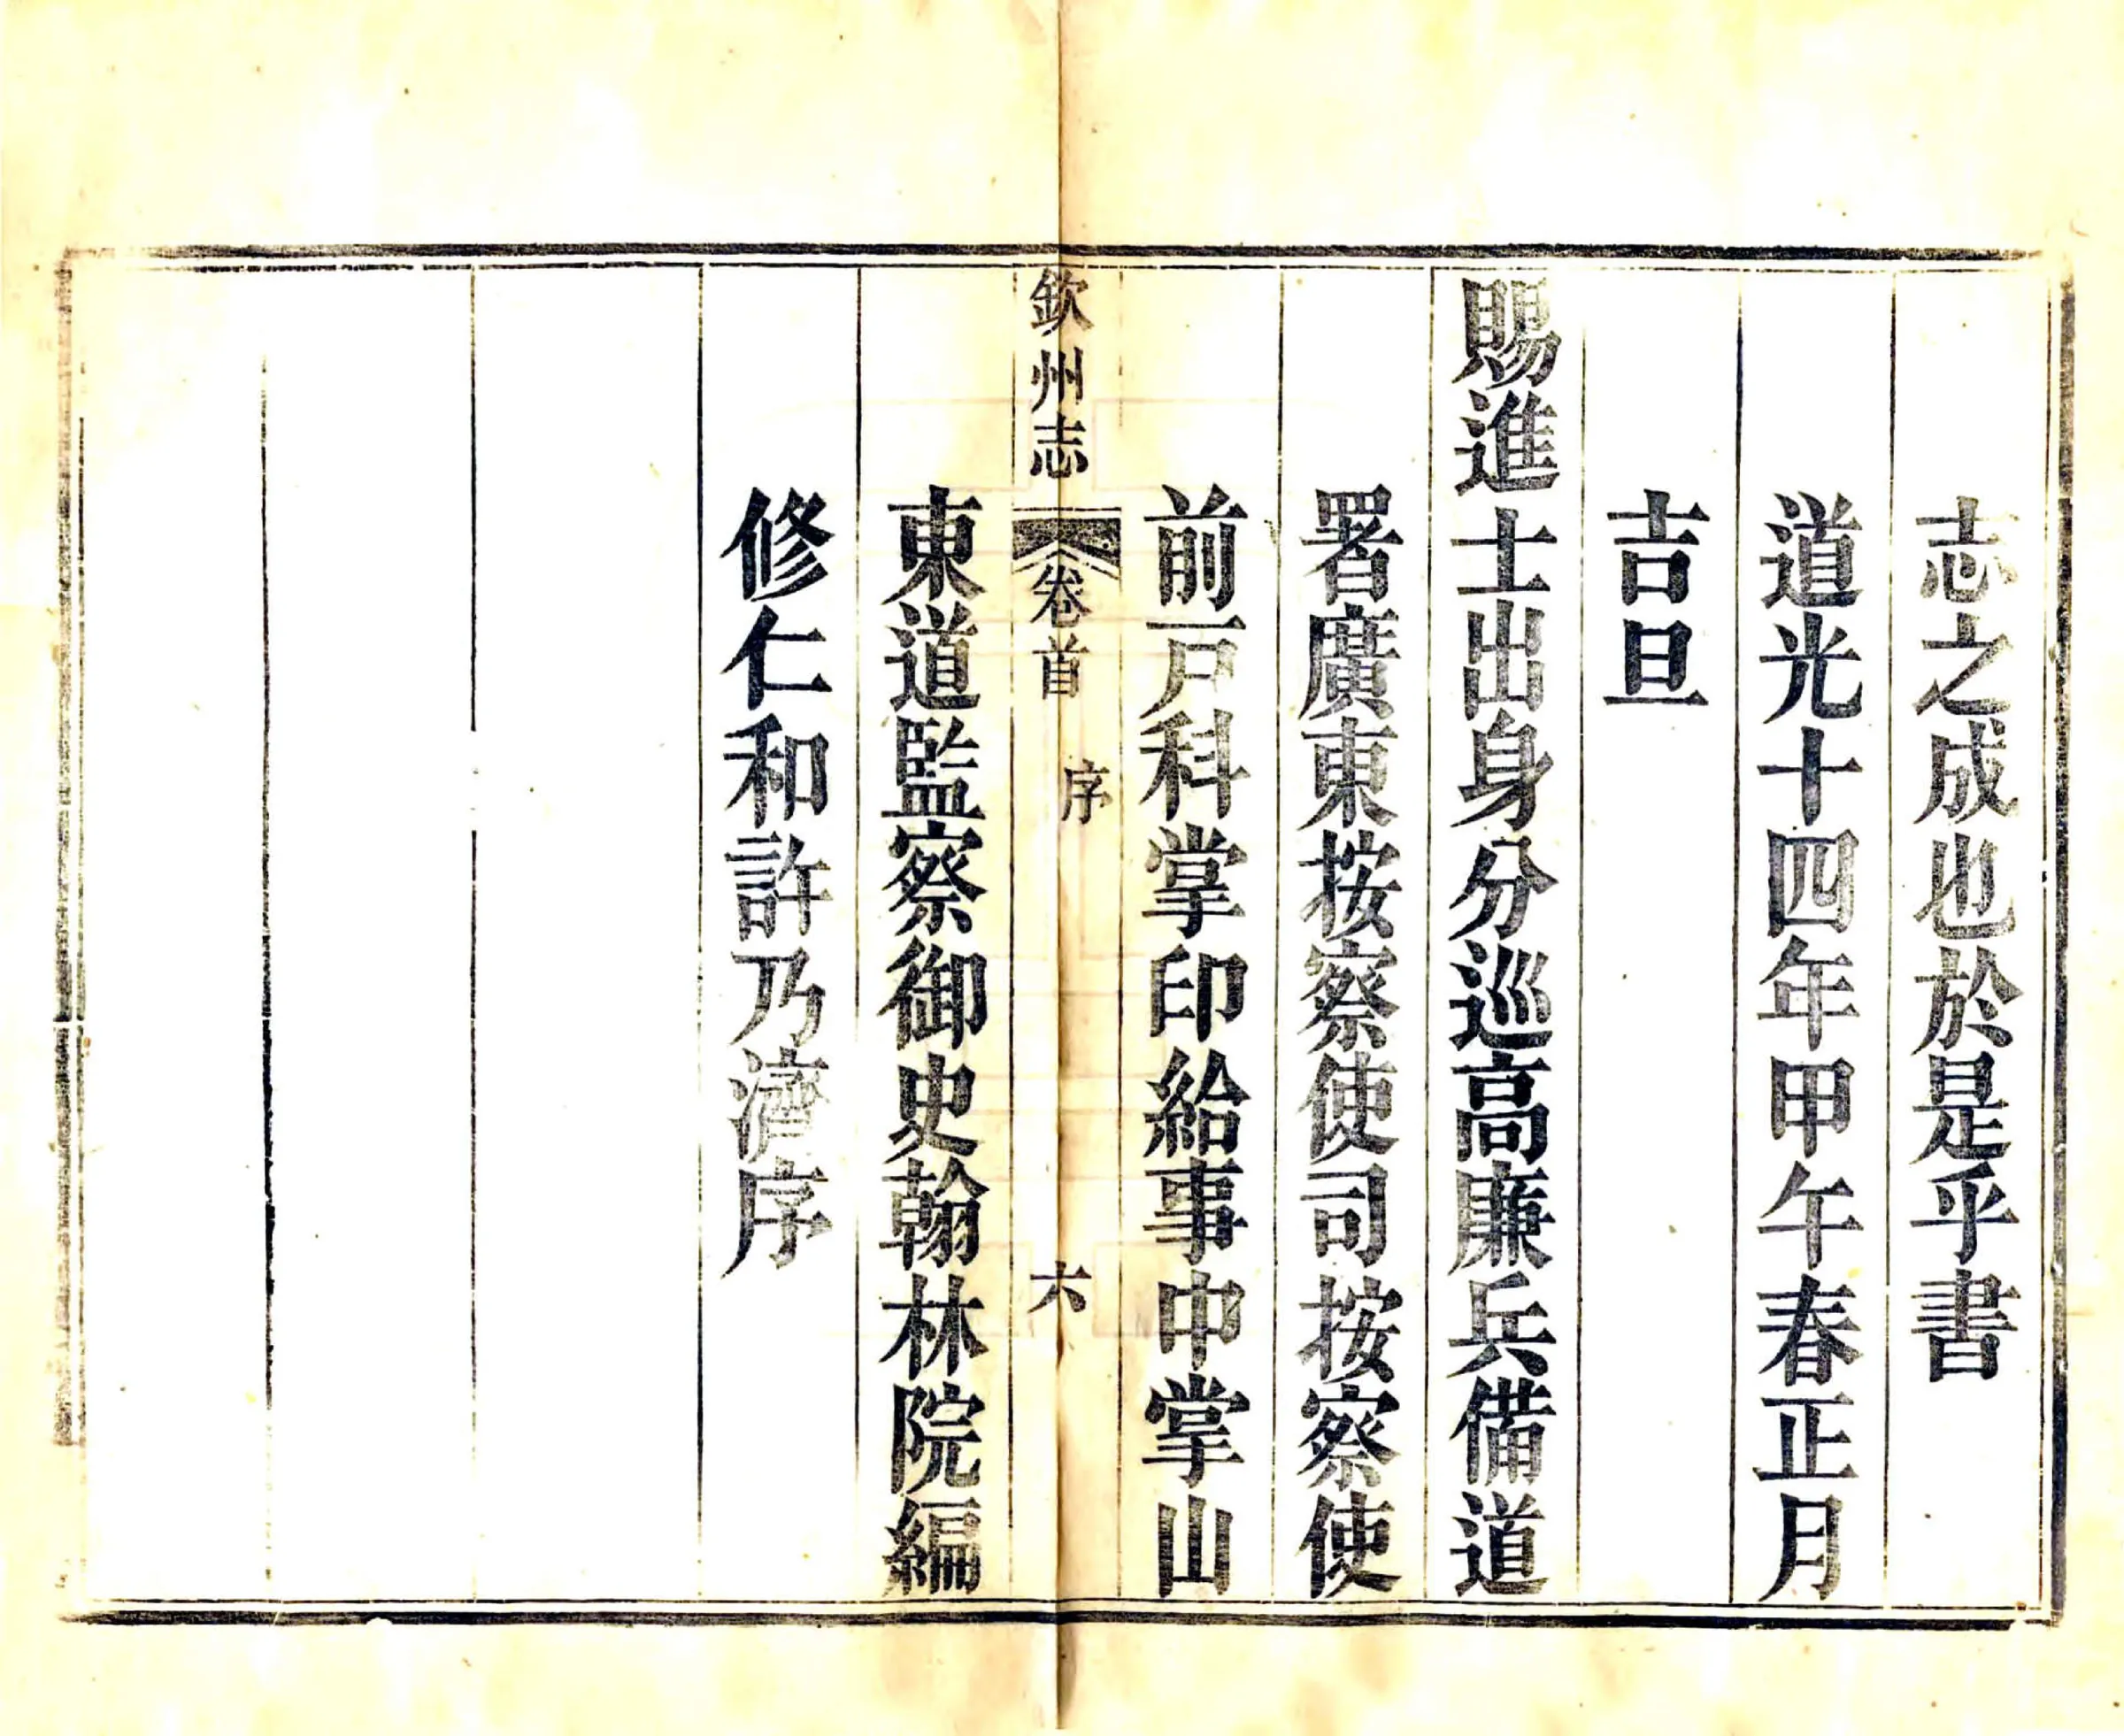 志之成也於是乎書
道光十四年甲午春正月
吉旦
賜進士出身分巡高廉兵備道
署廣東按察使司按察使
前戸科掌印給事中掌山
欽州志
卷首
序
六
東道監察御史翰林院編
修仁和許乃濟序